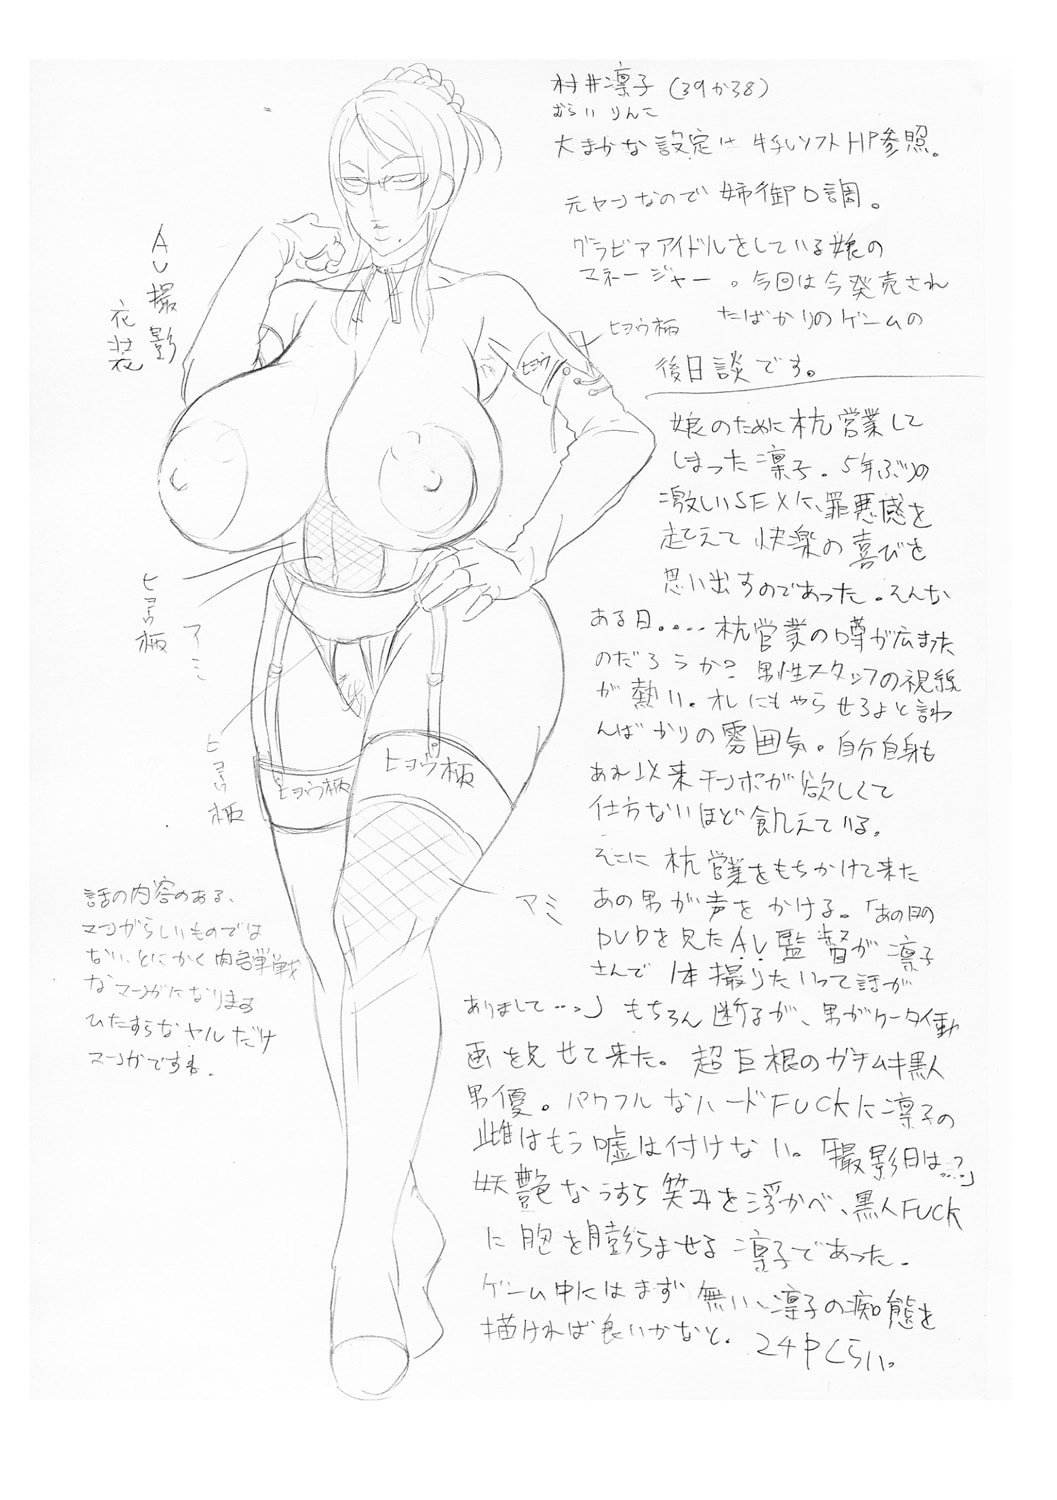 村井凛子(39か38)
むらい りんこ
大まかな設定は 牛乳ソフトHP参照。
元ヤンなので 姉御口調。
グラビアアイドルをしている娘の
マネージャー。今回は今発売され
たばかりのゲームの
後日談です。
娘のために枕営業して
しまった凛子。5年ぶりの
激しいSEXに、罪悪感を
超えて 快楽の喜びを
思い出すのであった。そんな
ある日.....枕営業の噂が広まった
のだろうか? 男性スタッフの視線
が熱い。オレにもやらせろよと言わ
んばかりの雰囲気。自分自身も
あれ以来チンポが欲しくて
仕方ないほど 飢えている。
そこに 枕営業をもちかけて来た
あの男が声をかける。「あの日の
DVDを見たAV監督が 凛子
さんで 1本撮りたいって話が
ありまして…っ」もちろん断るが、男がケータイ動
画を見せて来た。超巨根のガチムキ黒人
男優。パワフルなハードFUCKに凛子の
雌はもう嘘は付けない。「撮影日は…?」
妖艶なうすら笑みを浮かべ、黒人FUCK
に胸を膨らませる 凛子であった。
ゲーム中にはまず無い、凛子の痴態を
描ければ良いかなと。24Pくらい。
AV撮影
衣装
ヒョウ柄
ヒョウ
ヒョウ柄
アミ
ヒョウ柄
ヒョウ柄
ヒョウ柄
アミ
話の内容のある、
マンガらしいものでは
ない、とにかく肉弾戦
なマンガになります
ひたすらなヤルだけ
マンガですね。